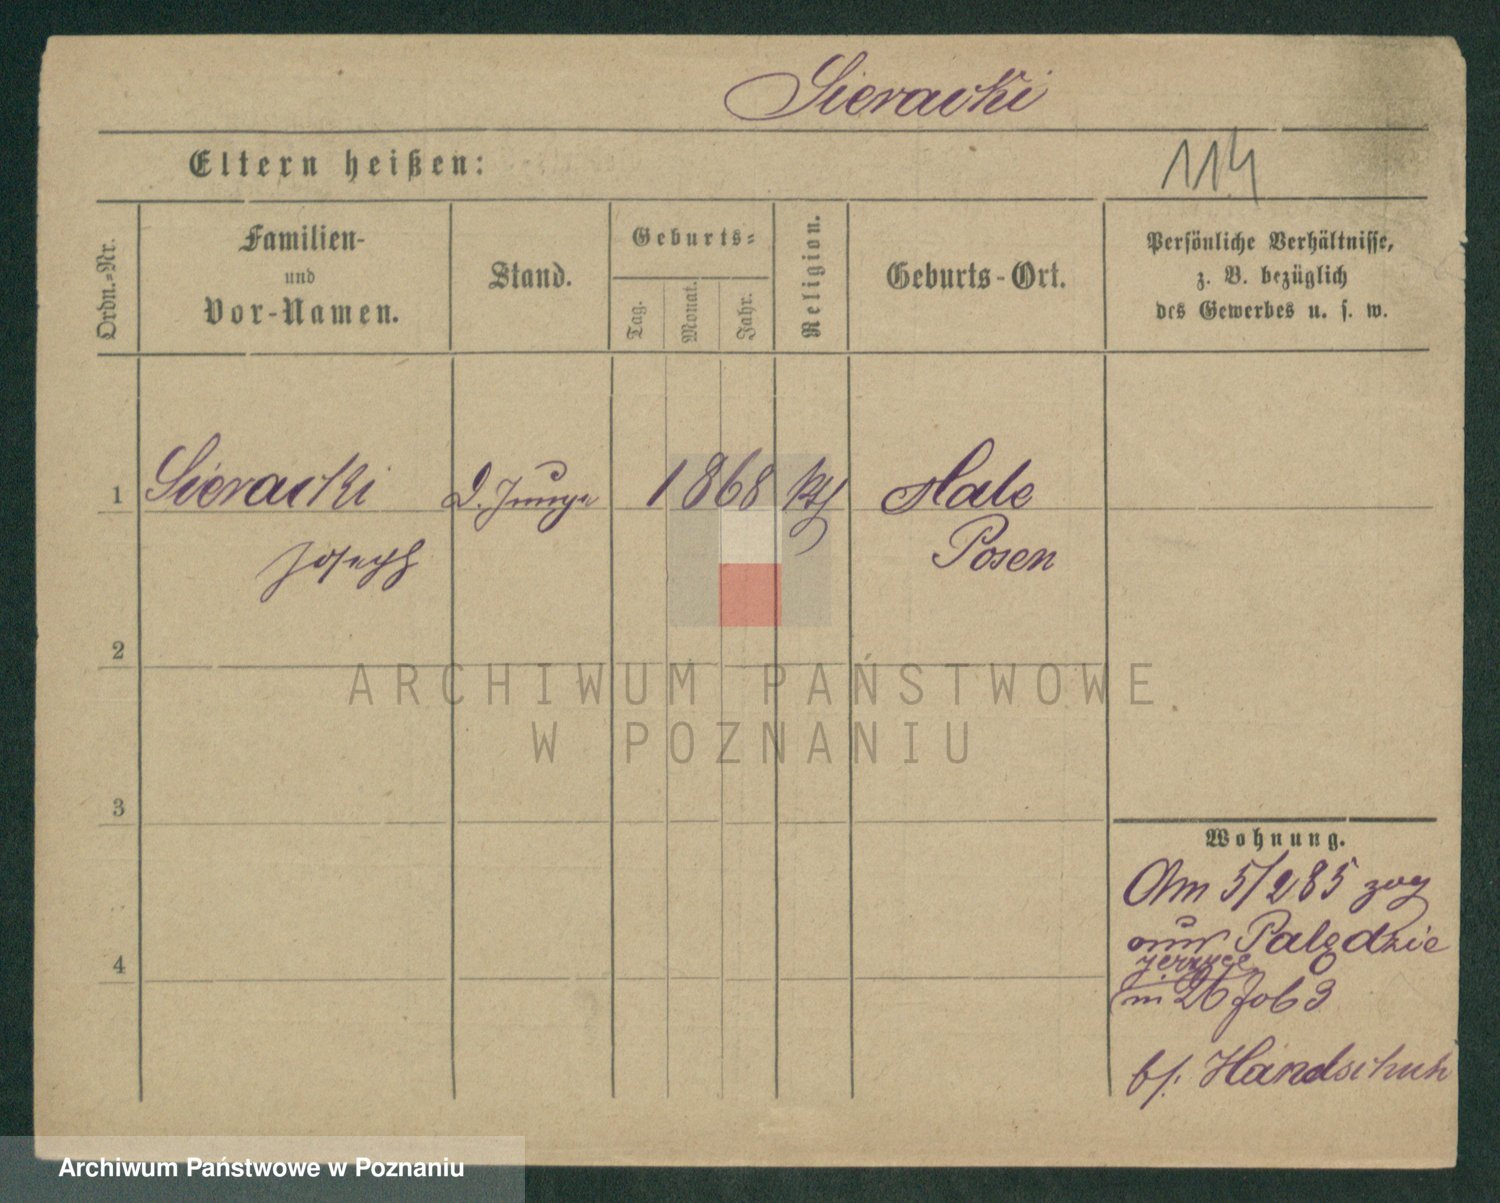 Sieracki
Eltern heißen:
114
Ordn.=Nr.
Familien-
und
Vor-Namen.
Stand.
Geburts=
Tag.
Monat.
Jahr.
Religion.
Geburts-Ort.
Persönliche Verhältnisse,
z. B. bezüglich
des Gewerbes u. s. w.
1
Sieracki
Joseph
D. Junge
1868
kth
Hale
Posen
2
3
4
Wohnung.
Am 5/2 85 zog
aus Palędzie
Jerzyce
in 26 Job 3
bf. Handschuh
ARCHIWUM PAŃSTWOWE
W POZNANIU
Archiwum Państwowe w Poznaniu